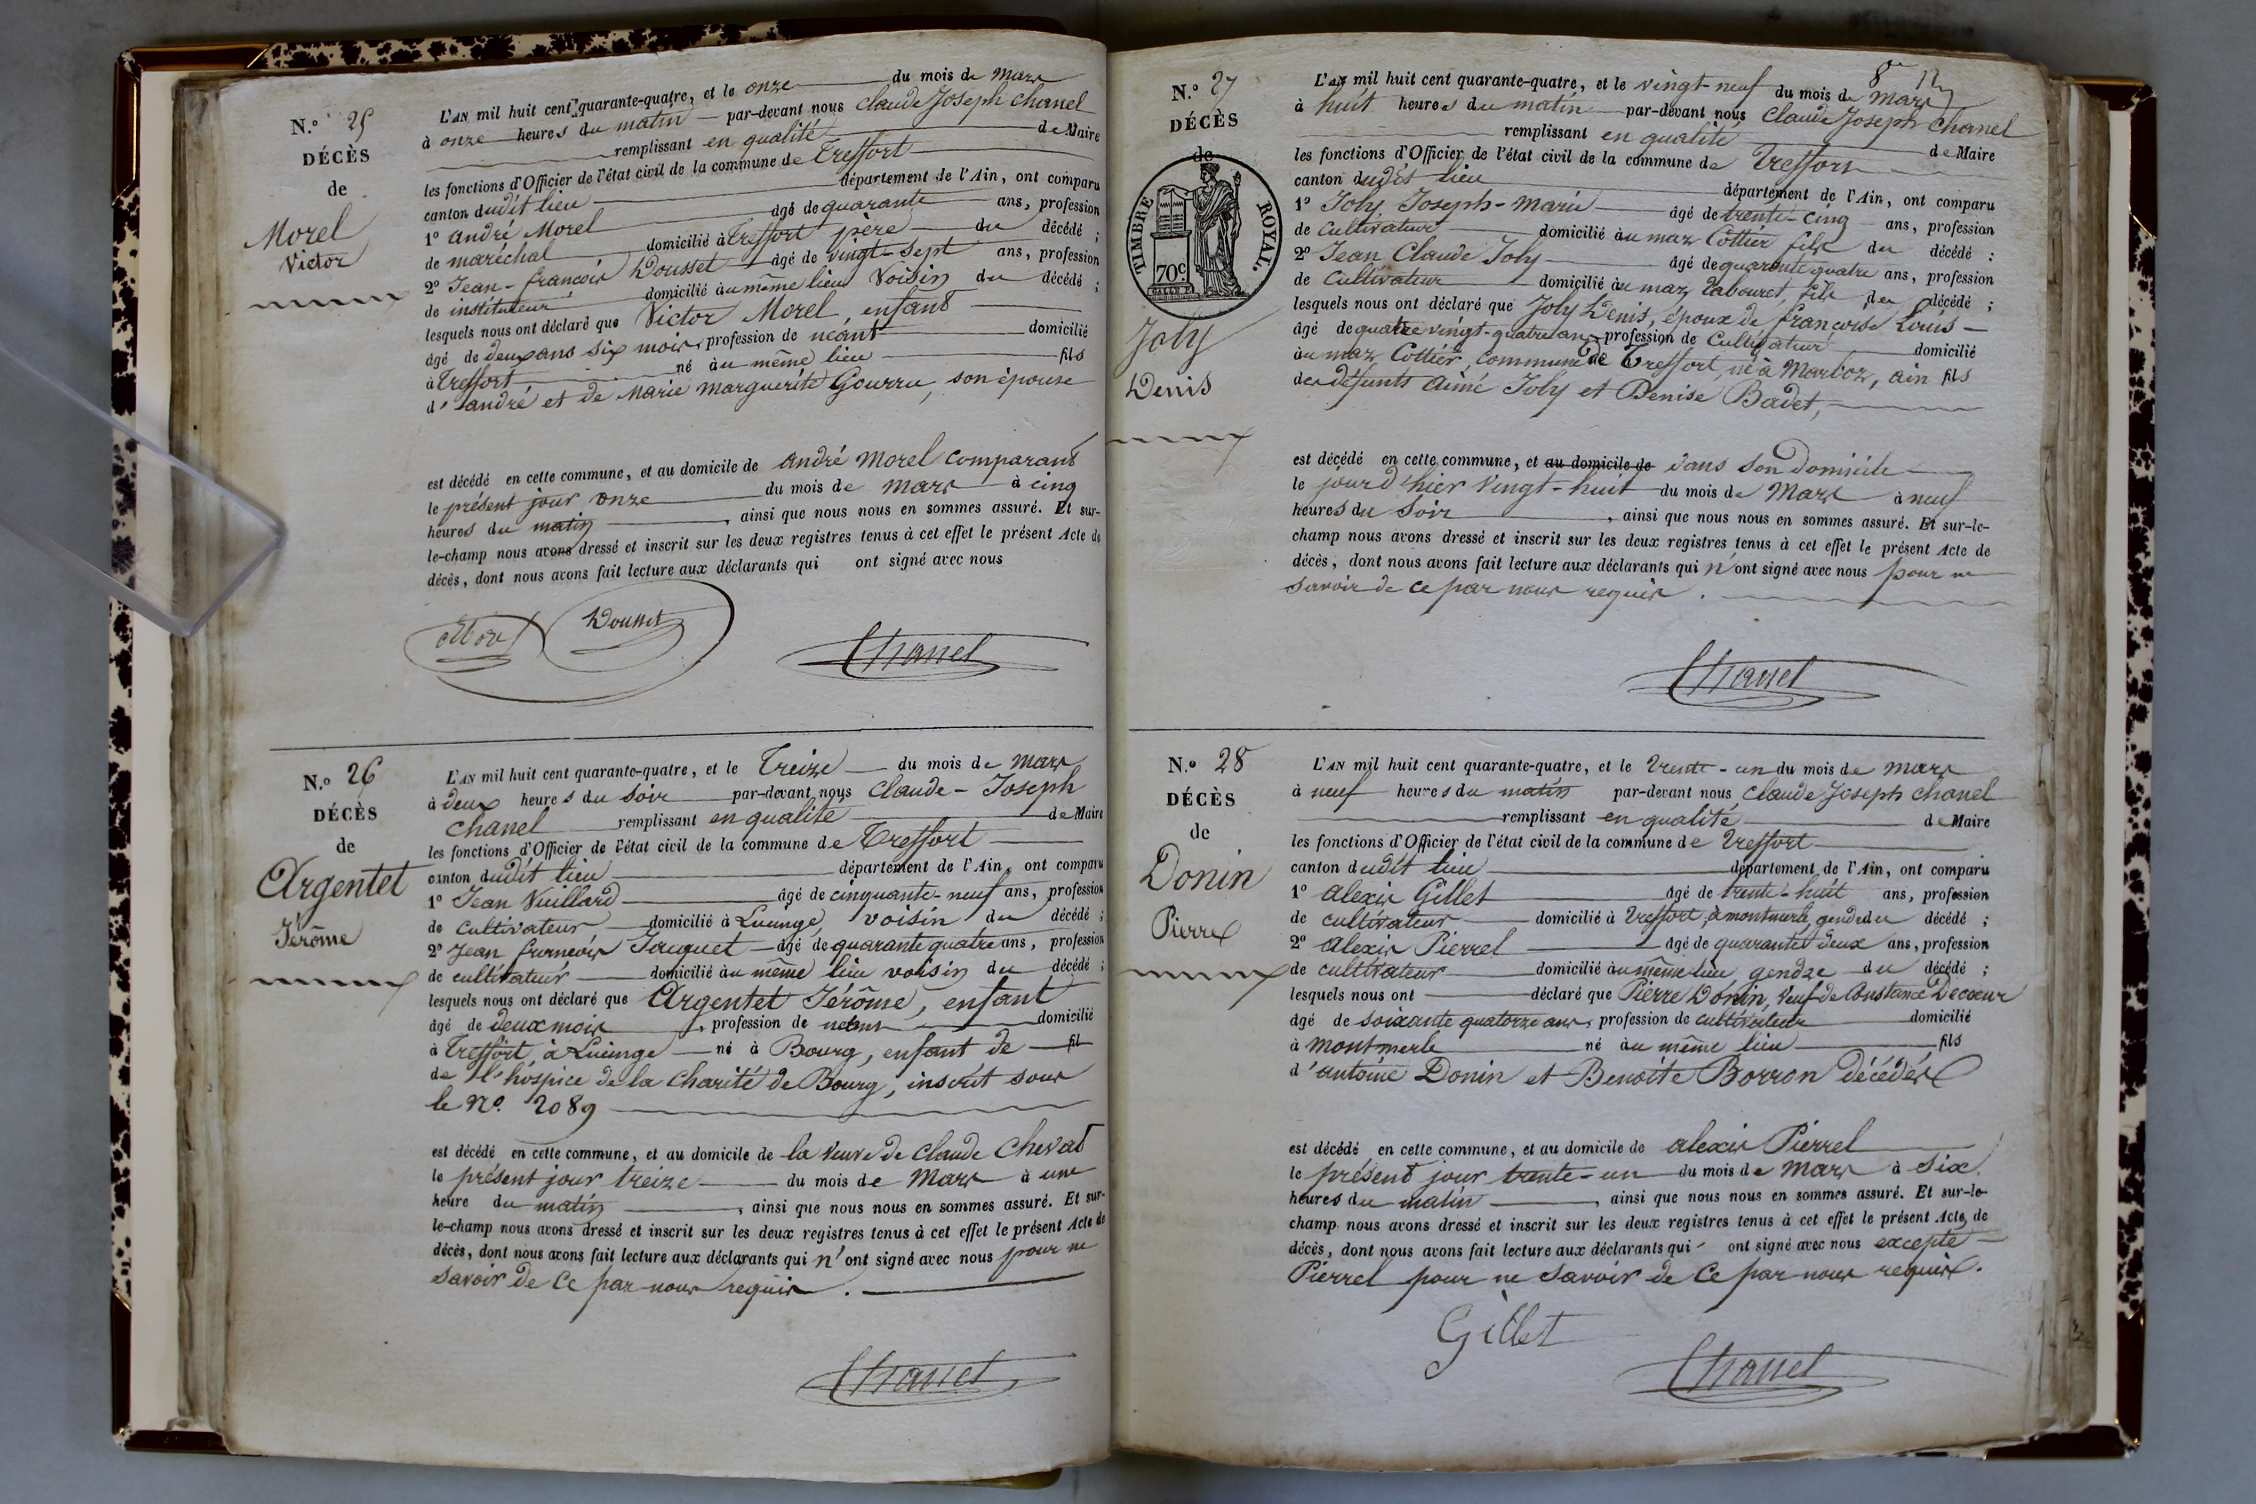 N.º 25
DÉCÈS
de
Morel
Victor
L'AN mil huit cent quarante-quatre, et le onze du mois de mars
à onze heures du matin par-devant nous Claude Joseph Chanel
remplissant en qualité de Maire
les fonctions d'Officier de l'état civil de la commune de Treffort
canton dudit lieu département de l'Ain, ont comparu
1º André Morel âgé de quarante ans, profession
de maréchal domicilié à Treffort père du décédé ;
2º Jean-françois Dousset âgé de vingt-sept ans, profession
de instituteur domicilié au même lieu Voisin du décédé ;
lesquels nous ont déclaré que Victor Morel, enfant
âgé de deux ans six mois, profession de néant domicilié
à Treffort né au même lieu fils
d'andré et de Marie Marguerite Gourru, son épouse
est décédé en cette commune, et au domicile de andré Morel comparant
le présent jour onze du mois de mars à cinq
heures du matin, ainsi que nous nous en sommes assuré. Et sur-
le-champ nous avons dressé et inscrit sur les deux registres tenus à cet effet le présent Acte de
décès, dont nous avons fait lecture aux déclarants qui ont signé avec nous
Morel Dousset Chanel
N.º 26
DÉCÈS
de
Argentet
Jérôme
L'AN mil huit cent quarante-quatre, et le Treize du mois de mars
à deux heures du soir par-devant nous Claude-Joseph
Chanel remplissant en qualité de Maire
les fonctions d'Officier de l'état civil de la commune de Treffort
canton dudit lieu département de l'Ain, ont comparu
1º Jean Vuillard âgé de cinquante-neuf ans, profession
de cultivateur domicilié à Lucinge, voisin du décédé ;
2º Jean françois Jacquet âgé de quarante quatre ans, profession
de cultivateur domicilié au même lieu voisin du décédé ;
lesquels nous ont déclaré que Argentet Jérôme, enfant
âgé de deux mois, profession de néant domicilié
à Treffort, à Lucinge né à Bourg, enfant de fil
de l'hospice de la Charité de Bourg, inscrit sous
le Nº. 2089
est décédé en cette commune, et au domicile de la Veuve de Claude Chevat
le présent jour treize du mois de Mars à une
heure du matin, ainsi que nous nous en sommes assuré. Et sur-
le-champ nous avons dressé et inscrit sur les deux registres tenus à cet effet le présent Acte de
décès, dont nous avons fait lecture aux déclarants qui n'ont signé avec nous pour ne
savoir de ce par nous requis.
Chanel
8e
N.º 27
DÉCÈS
de
TIMBRE ROYAL.
70c.
Joly
Denis
L'AN mil huit cent quarante-quatre, et le vingt-neuf du mois de Mars
à huit heures du matin par-devant nous Claude Joseph Chanel
remplissant en qualité de Maire
les fonctions d'Officier de l'état civil de la commune de Treffort
canton dudit lieu département de l'Ain, ont comparu
1º Joly Joseph-Marie âgé de trente-cinq ans, profession
de Cultivateur domicilié au maz Cottier fils du décédé ;
2º Jean Claude Joly âgé de quarante quatre ans, profession
de Cultivateur domicilié au maz Tabouret, fils du décédé ;
lesquels nous ont déclaré que Joly Denis, époux de françoise Louis
âgé de quatre vingt-quatre ans, profession de Cultivateur domicilié
au maz Cottier, commune de Treffort, né à Marboz, ain fils
des défunts aimé Joly et Denise Badet,
est décédé en cette commune, et au domicile de dans son domicile
le jour d'hier vingt-huit du mois de Mars à neuf
heures du Soir, ainsi que nous nous en sommes assuré. Et sur-le-
champ nous avons dressé et inscrit sur les deux registres tenus à cet effet le présent Acte de
décès, dont nous avons fait lecture aux déclarants qui n'ont signé avec nous pour ne
savoir de ce par nous requis.
Chanel
N.º 28
DÉCÈS
de
Donin
Pierre
L'AN mil huit cent quarante-quatre, et le trente-un du mois de mars
à neuf heures du matin par-devant nous Claude Joseph Chanel
remplissant en qualité de Maire
les fonctions d'Officier de l'état civil de la commune de Treffort
canton dudit lieu département de l'Ain, ont comparu
1º Alexis Gillet âgé de trente-huit ans, profession
de cultivateur domicilié à Treffort, à montmerle, gendre du décédé ;
2º Alexis Pierrel âgé de quarante deux ans, profession
de cultivateur domicilié au même lieu gendre du décédé ;
lesquels nous ont déclaré que Pierre Donin, veuf de Constance Decoeur
âgé de soixante quatorze ans, profession de cultivateur domicilié
à montmerle né au même lieu fils
d'antoine Donin et Benoîte Borron décédés
est décédé en cette commune, et au domicile de alexis Pierrel
le présent jour trente-un du mois de Mars à six
heures du matin, ainsi que nous nous en sommes assuré. Et sur-le-
champ nous avons dressé et inscrit sur les deux registres tenus à cet effet le présent Acte de
décès, dont nous avons fait lecture aux déclarants qui ont signé avec nous excepté
Pierrel pour ne savoir de ce par nous requis.
Gillet
Chanel